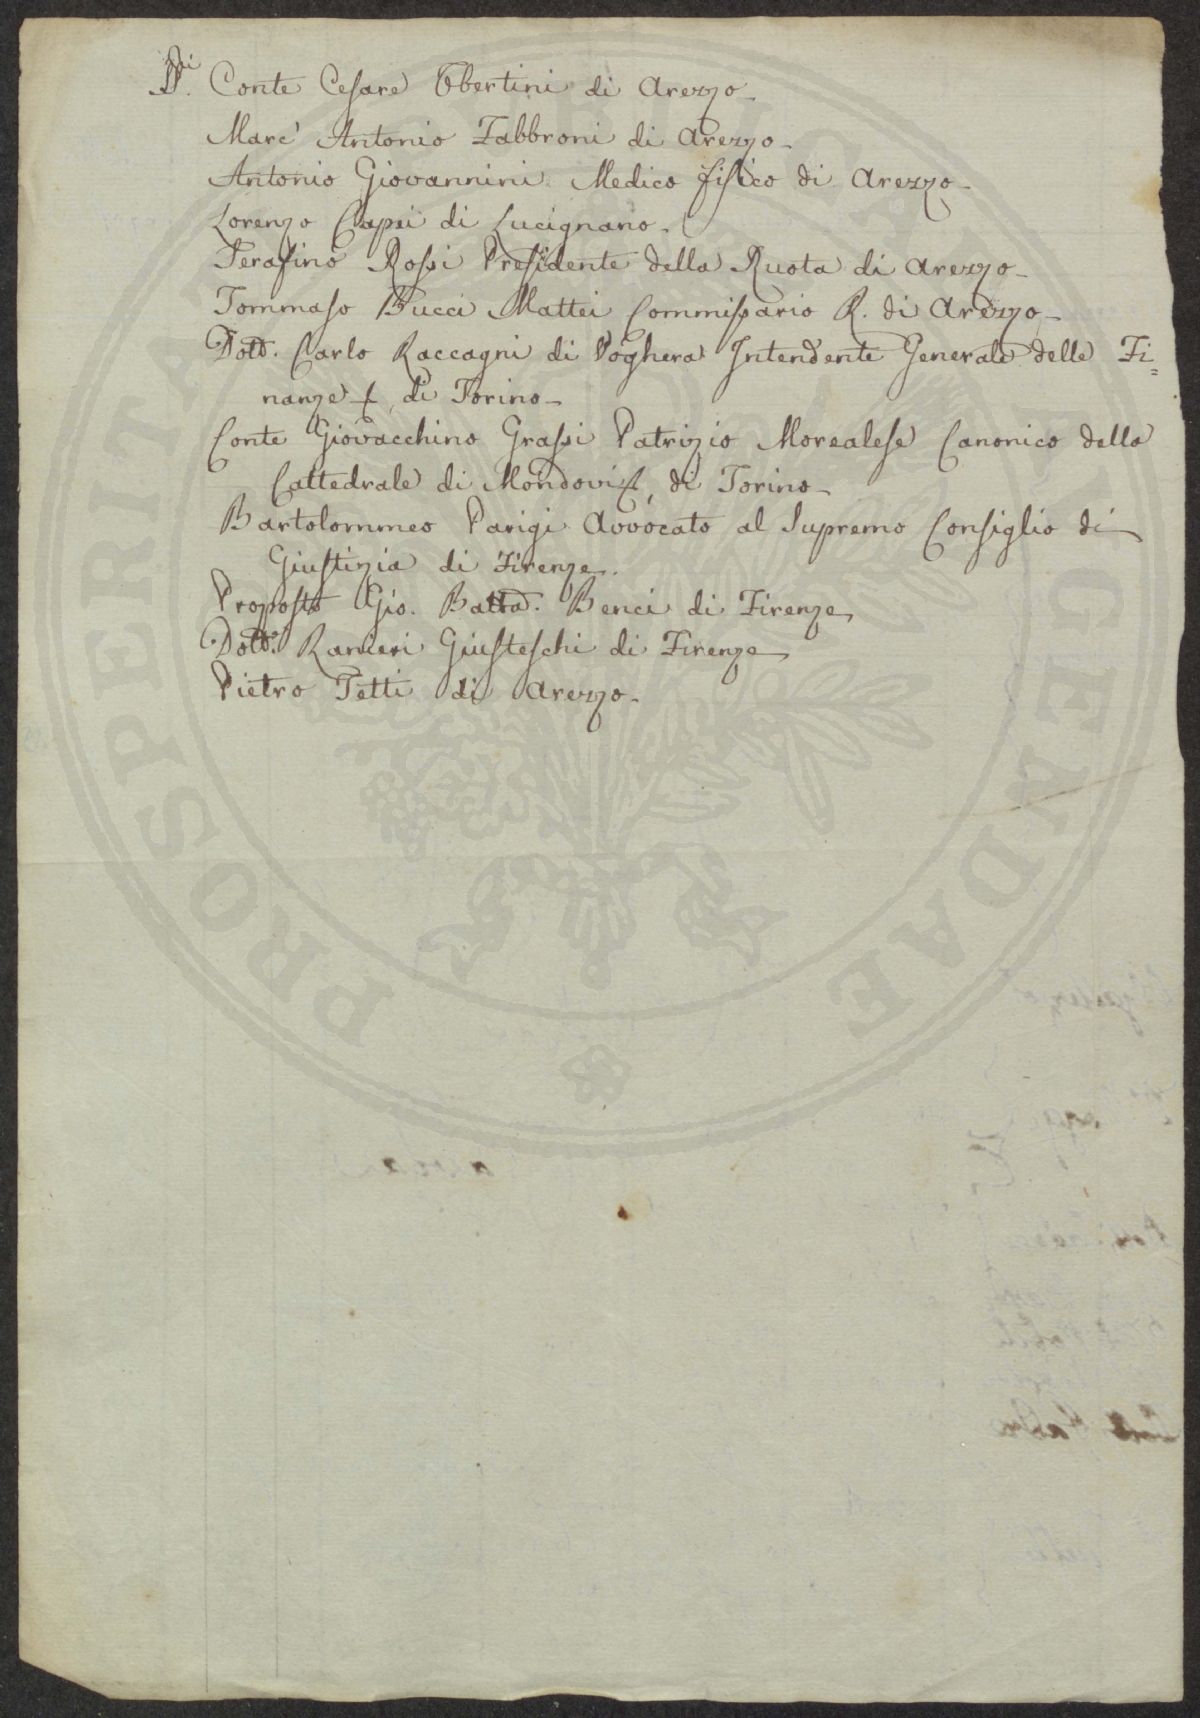 Conte Cesare Obertini di Arezzo
Marc' Antonio Fabbroni di Arezzo
Antonio Giovannini Medico fisico di Arezzo
Lorenzo Capei di Lucignano
Serafino Rossi Presidente della Ruota di Arezzo
Tommaso Bucci Mattei Commissario R. di Arezzo
Dott. Carlo Raccagni di Voghera Intendente Generale delle Fi=
nanze di Torino
Conte Giovacchino Grassi Patrizio Morealese Canonico della
Cattedrale di Mondovi di Torino
Bartolommeo Parigi Avvocato al Supremo Consiglio di
Giustizia di Firenze.
Proposto Gio. Batta. Benci di Firenze
Dott. Ranieri Giusteschi di Firenze
Pietro Tetti di Arezzo
PROSPERITATI PUBLICAE AUGENDAE